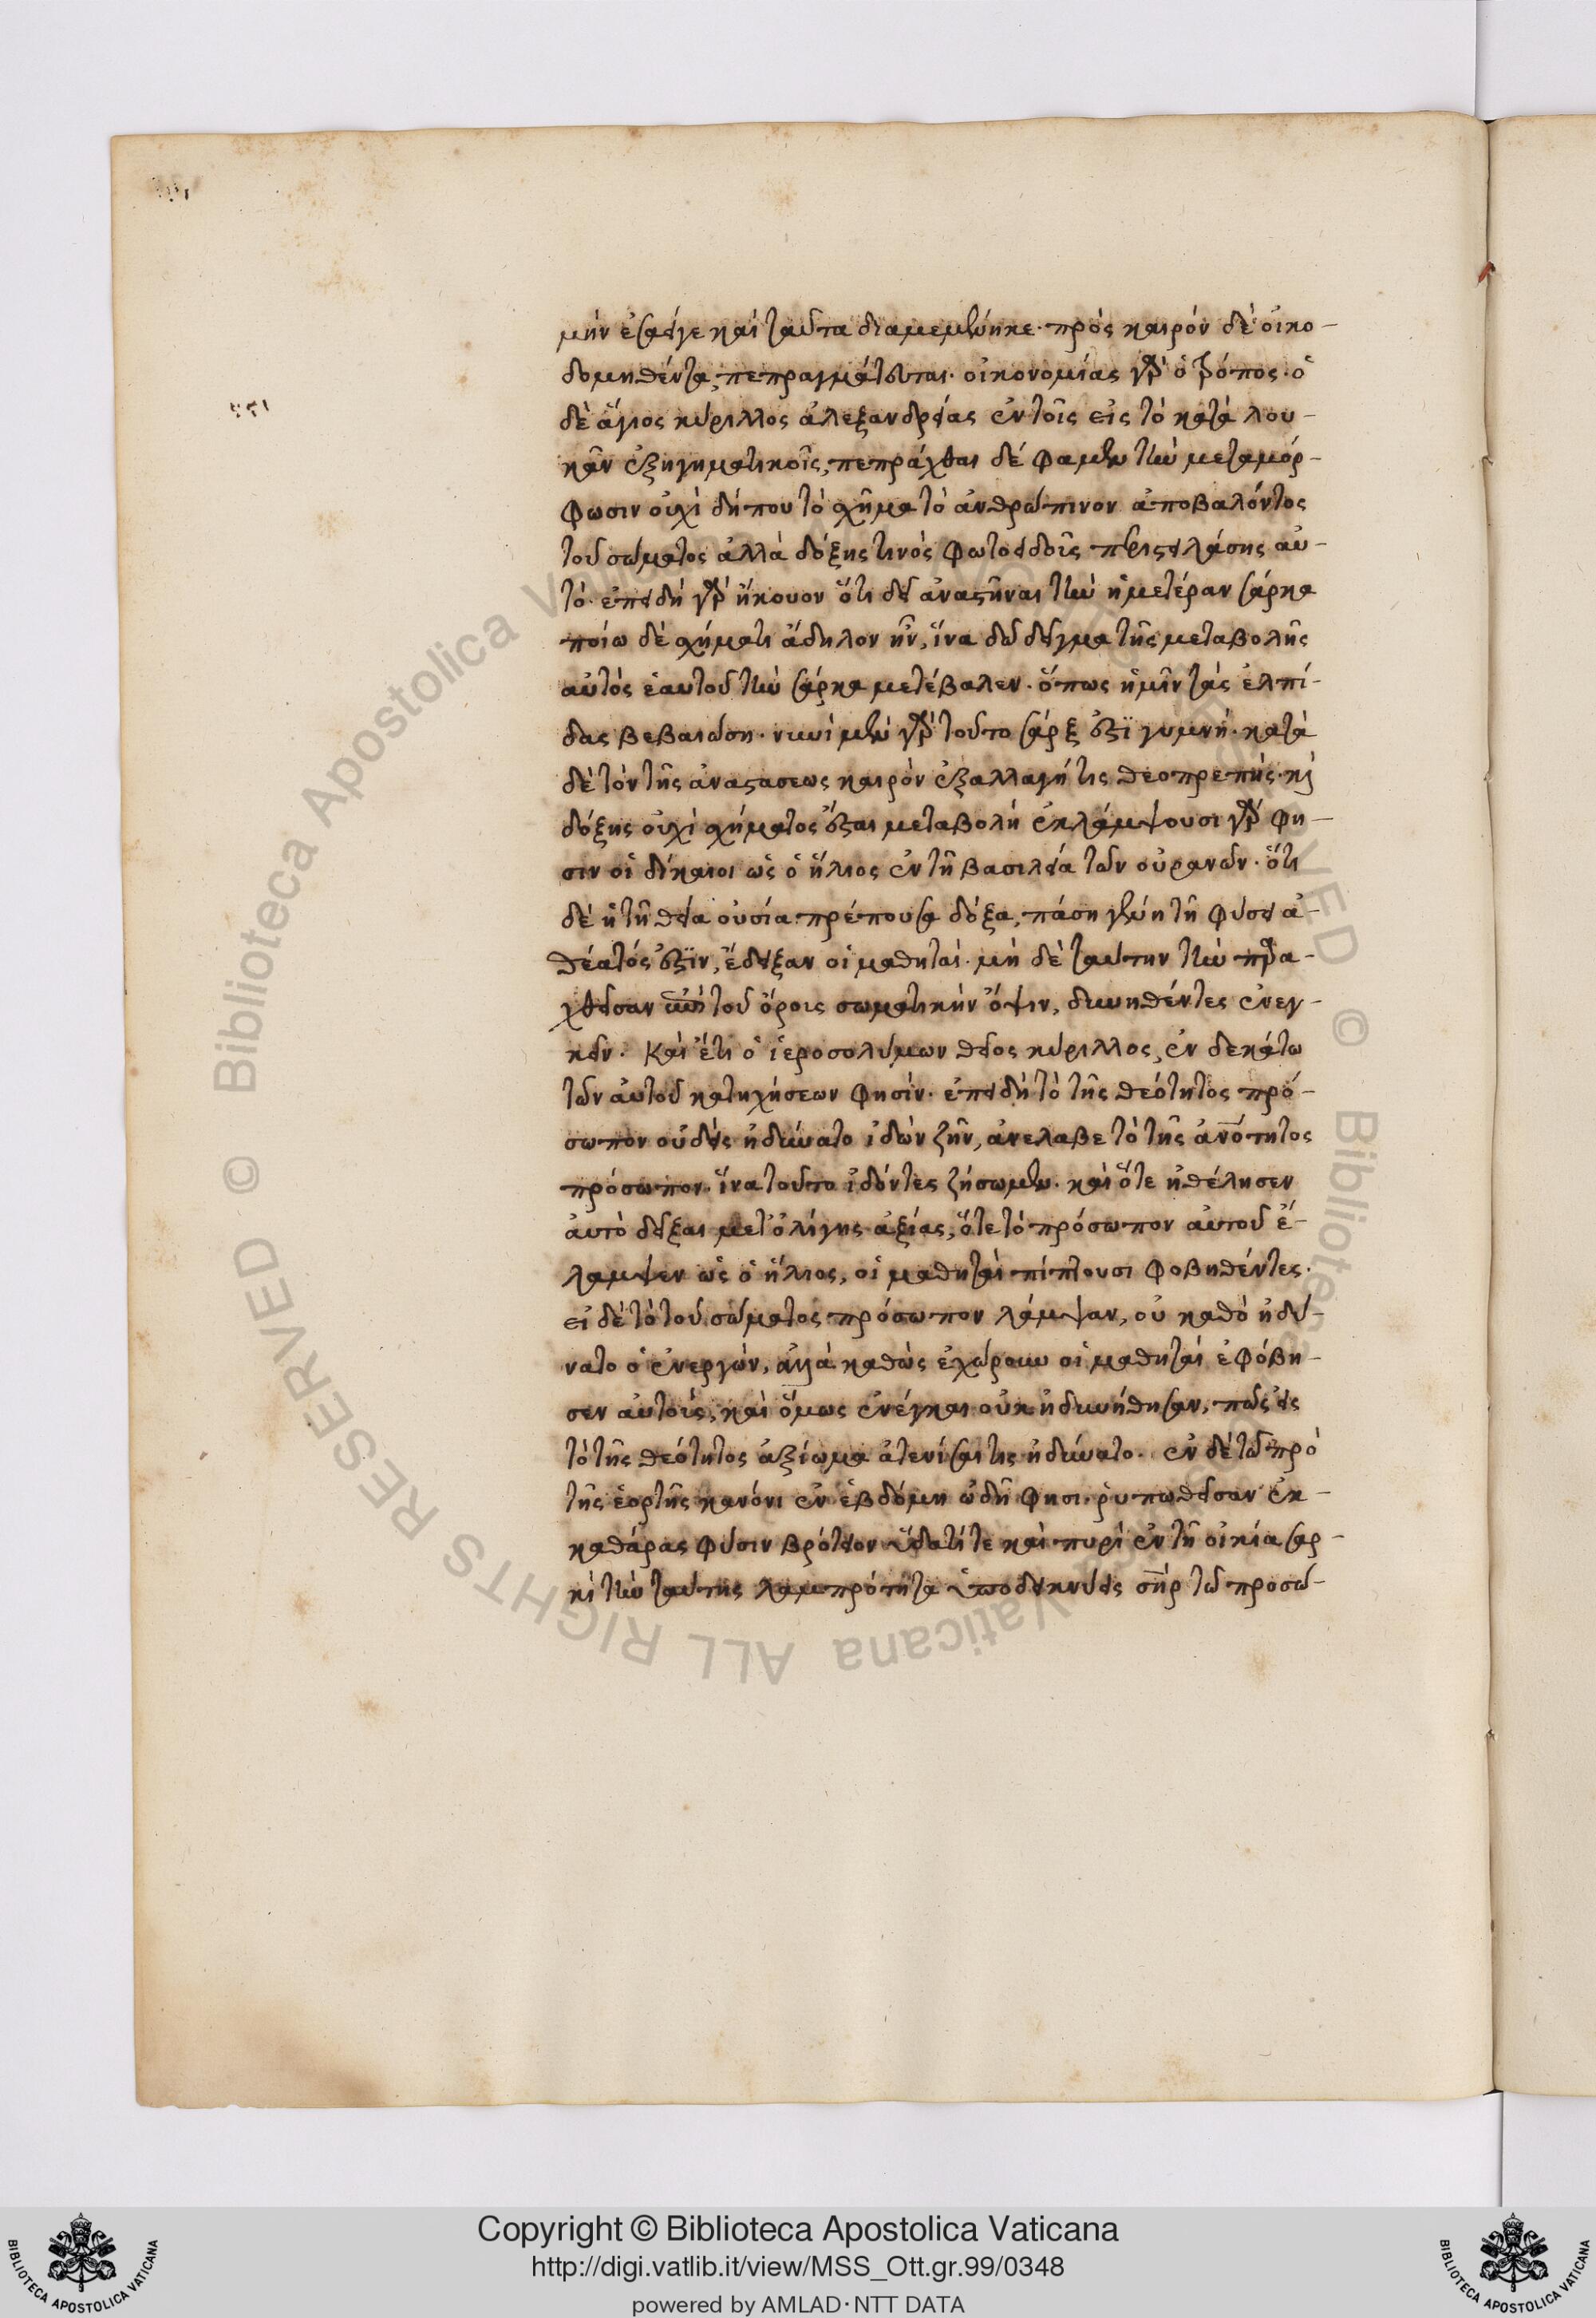 μὴν ἐσαεί γε καὶ ταῦτα διαμεμένηκε· πρὸς καιρὸν δὲ οἰκο-
δομηθέντα, πεπραγμάτευται· οἰκονομίας γὰρ ὁ τρόπος· ὁ
δὲ ἅγιος κύριλλος ἀλεξανδρείας ἐν τοῖς εἰς τὸ κατὰ λου-
κᾶν ἐξηγηματικοῖς, πεπράχθαι δέ φαμεν τὴν μεταμόρ-
φωσιν οὐχὶ δήπου τὸ σχῆμα τὸ ἀνθρώπινον ἀποβαλόντος
τοῦ σώματος ἀλλὰ δόξης τινὸς φωτοειδοῦς περιστειλάσης αὐ-
τό· ἐπειδὴ γὰρ ἤκουον ὅτι δεῖ ἀναστῆναι τὴν ἡμετέραν σάρκα
ποίω δὲ σχήματι ἄδηλον ἦν, ἵνα δῶ δεῖγμα τῆς μεταβολῆς
αὐτὸς ἑαυτοῦ τὴν σάρκα μετέβαλεν· ὅπως ἡμῖν τὰς ἐλπί-
δας βεβαιώση· νυνὶ μὲν γὰρ τοῦτο σάρξ ἐστι γυμνή· κατὰ
δὲ τὸν τῆς ἀναστάσεως καιρὸν ἐξαλλαγή τις θεοπρεπής· καὶ
δόξης οὐχὶ σχήματος ἔσται μεταβολὴ ἐκλάμψουσι γάρ φη-
σιν οἱ δίκαιοι ὡς ὁ ἥλιος ἐν τῆ βασιλεία τῶν οὐρανῶν· ὅτι
δὲ ἡ τῆ θεία οὐσία πρέπουσα δόξα, πάση γενητῆ φύσει ἀ-
θέατός ἐστιν, ἔδειξαν οἱ μαθηταί· μὴ δὲ ταύτην τὴν πρα-
χθεῖσαν ἐπὶ τοῦ ὄρους σωματικὴν ὄψιν, δυνηθέντες ἐνεγ-
κεῖν· Καὶ ἔτι ὁ ἱεροσολύμων θεῖος κύριλλος, ἐν δεκάτω
τῶν αὐτοῦ κατηχήσεων φησίν· ἐπειδὴ τὸ τῆς θεότητος πρό-
σωπον οὐδεὶς ἠδύνατο ἰδὼν ζῆν, ἀνελαβε τὸ τῆς ἀνοτητος
πρόσωπον· ἵνα τοῦτο ἰδόντες ζήσωμεν· καὶ ὅτε ἠθέλησεν
αὐτὸ δεῖξαι μετ' ὀλίγης ἀξίας, ὅτε τὸ πρόσωπον αὐτοῦ ἔ-
λαμψεν ὡς ὁ ἥλιος, οἱ μαθηταὶ πίπτουσι φοβηθέντες·
εἰ δὲ τὸ τοῦ σώματος πρόσωπον λάμψαν, οὐ καθὸ ἠδύ-
νατο ὁ ἐνεργῶν, ἀλλὰ καθὼς ἐχώρουν οἱ μαθηταὶ ἐφόβη-
σεν αὐτούς, καὶ ὅμως ἐνέγκαι οὐκ ἠδυνήθησαν, πῶς εἰς
τὸ τῆς θεότητος ἀξίωμα ἀτενίσαι τις ἠδύνατο· ἐν δὲ τῶ πρὸ
τῆς ἑορτῆς κανόνι ἐν ἑβδόμη ὠδῆ φησι· ῥυπωθεῖσαν ἐκ-
καθάρας φύσιν βρότειον ὕδατί τε καὶ πυρὶ ἐν τῆ οἰκία σαρ-
κὶ τὴν ταύτης λαμπρότητα ὑποδεικνύεις σηρ τῶ προσώ-